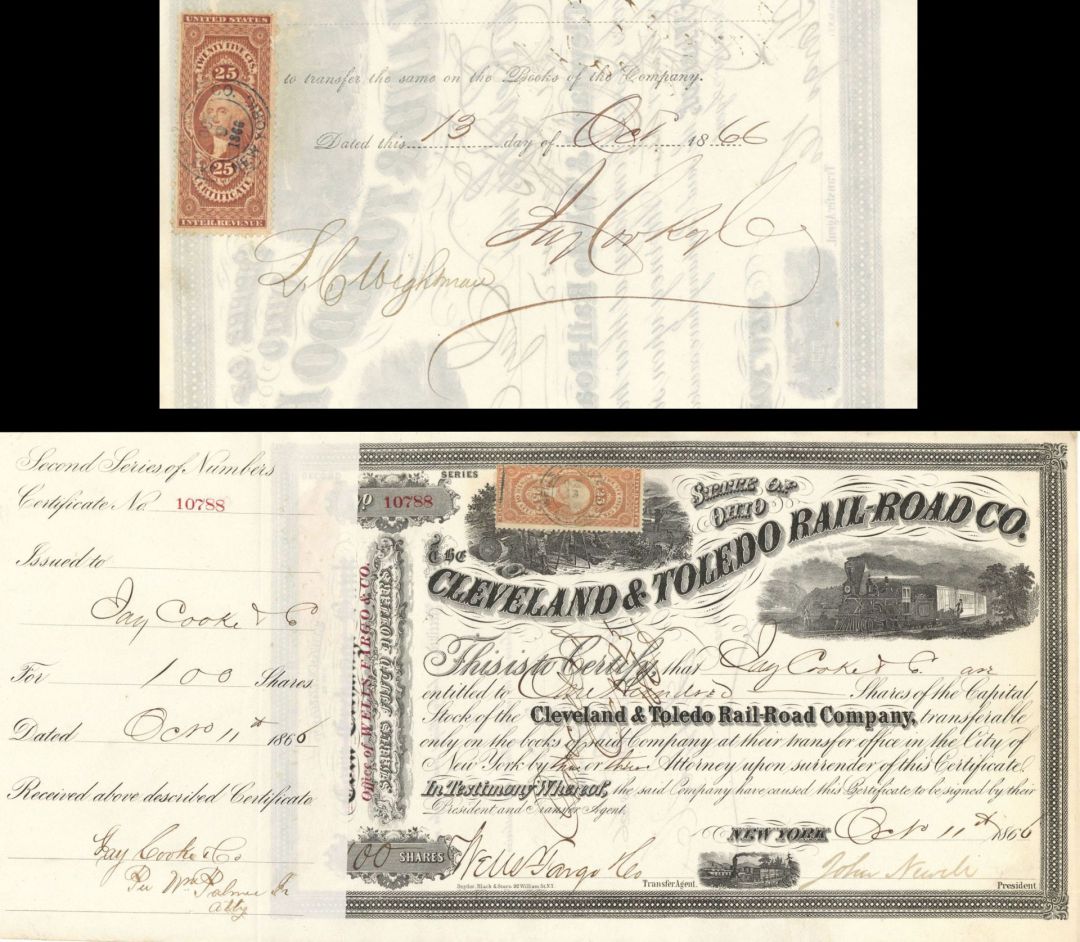 UNITED STATES
TWENTY FIVE CTS.
25
1866
25
CERTIFICATE
INTER. REVENUE
to transfer the same on the Books of the Company.
Dated this 13 day of Oct 1866
Jay Cooke & Co
L C Wightman
Transfer Agent.
Second Series of Numbers
Certificate No. 10788
Issued to
Jay Cooke & Co
For 100 Shares
Dated Oct 11th 1866
Received above described Certificate
Jay Cooke & Co
Per Wm Palmer Jr
Atty
SERIES
10788
Office of WELLS, FARGO & CO.
00 SHARES
STATE OF
OHIO
THE
CLEVELAND & TOLEDO RAIL-ROAD CO.
This is to Certify that Jay Cooke & Co are
entitled to One Hundred Shares of the Capital
Stock of the Cleveland & Toledo Rail-Road Company, transferable
only on the books of said Company at their transfer office in the City of
New York by or their Attorney upon surrender of this Certificate.
In Testimony Whereof, the said Company have caused this Certificate to be signed by their
President and Transfer Agent.
NEW YORK Oct 11th 1866
Wells Fargo & Co
Transfer Agent.
President